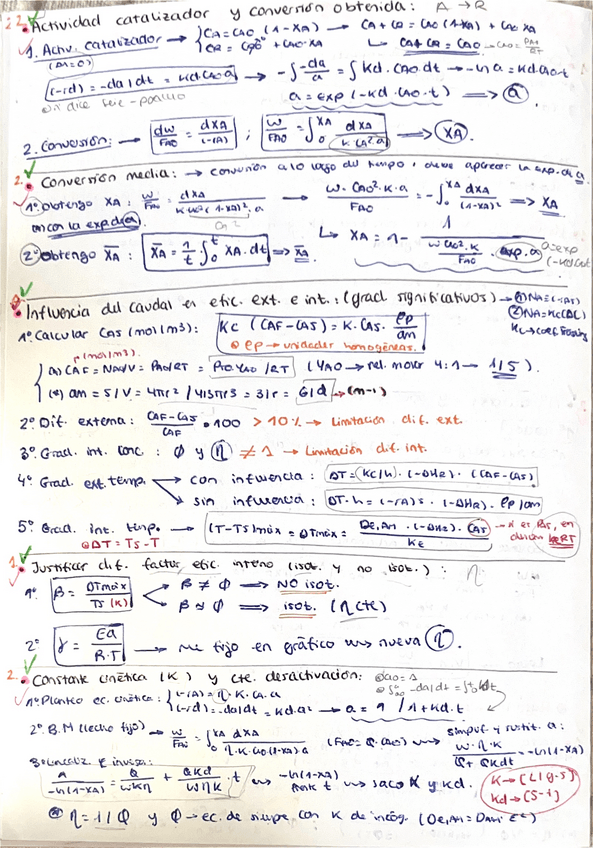 2. Actividad catalizador y conversión obtenida: A → R
1. Activ. catalizador → { CA = CAO (1-XA) → CA + CR = CAO (1-XA) + CAO·XA
CR = CRO + CAO·XA ↳ CA + CR = CAO
(-rd) = -da/dt = Kd·CAO·a → -∫ -da/a = ∫ Kd·CAO·dt → -ln a = Kd·CAO·t
a = exp (-Kd·CAO·t) ⟹ a
2. Conversión: → dW/FAO = dXA/(-rA) ; W/FAO = ∫0^XA dXA / K·CA²·a ⟹ XA.
2. Conversión media: → conversión a lo largo del tiempo, debe aparecer la exp. de a
1º Obtengo XA: W/FAO = dXA / K·CAO²(1-XA)²·a → W·CAO²·K·a / FAO = -∫0^XA dXA/(1-XA)² ⟹ XA
con la exp. de a
↳ XA = 1 - 1 / W·CAO²·K/FAO · exp. a
a = exp (-Kd·CAO·t)
2º Obtengo X̄A: X̄A = 1/t ∫0^t XA·dt ⟹ X̄A
Influencia del caudal en efic. ext. e int.: (grad. significativos) → ① NA = (-rAS)
② NA = Kc(ΔC)
1º Calcular CAS (mol/m3): Kc (CAF - CAS) = K·CAS· ep/am
ep → unidades homogéneas.
(mol/m3)
CAF = NA/V = PAO/RT = P·yAO/RT (yAO → rel. molar 4:1 → 1/5).
(*) am = S/V = 4πr² / 4/3πr3 = 3/r = 6/d → (m-1)
2º Dif. externa: CAF - CAS / CAF · 100 > 10% → Limitación dif. ext.
3º Grad. int. conc.: Φ y η ≠ 1 → Limitación dif. int.
4º Grad. ext. temp. con influencia: ΔT = (Kc/h) · (-ΔHR) · (CAF - CAS)
sin influencia: ΔT·h = (-rA)s · (-ΔHR) · ep/am
5º Grad. int. temp. → (T-TS)máx = ΔTmáx = De,AM · (-ΔHR) · CAS / Ke
ΔT = TS - T
1. Justificar dif. factor efic. interno (isot. y no isot.): η
1º. β = ΔTmáx / TS (K) β ≠ Φ ⟹ NO isot.
β ≈ Φ ⟹ isot. (η cte)
2º γ = Ea / R·T → me fijo en gráfico → nueva η.
2. Constante cinética (K) y cte. desactivación:
1º Planteo ec. cinética: { (-rA) = η·K·CA·a
(-rd) = -da/dt = Kd·a² → a = 1 / 1+Kd·t
2º B.M (lecho fijo) → W/FAO = ∫0^XA dXA / η·K·CAO(1-XA)a (FAO = Q·CAO) → simplif. y sustit. a:
W·η·K / Q + QKdt = -ln(1-XA)
1 / -ln(1-XA) = Q / WKη + QKd / WηK · t → saco K y Kd.
K → [L/g·s]
Kd → [s-1]
η = 1/Φ y Φ → ec. de siempre con K de incóg.